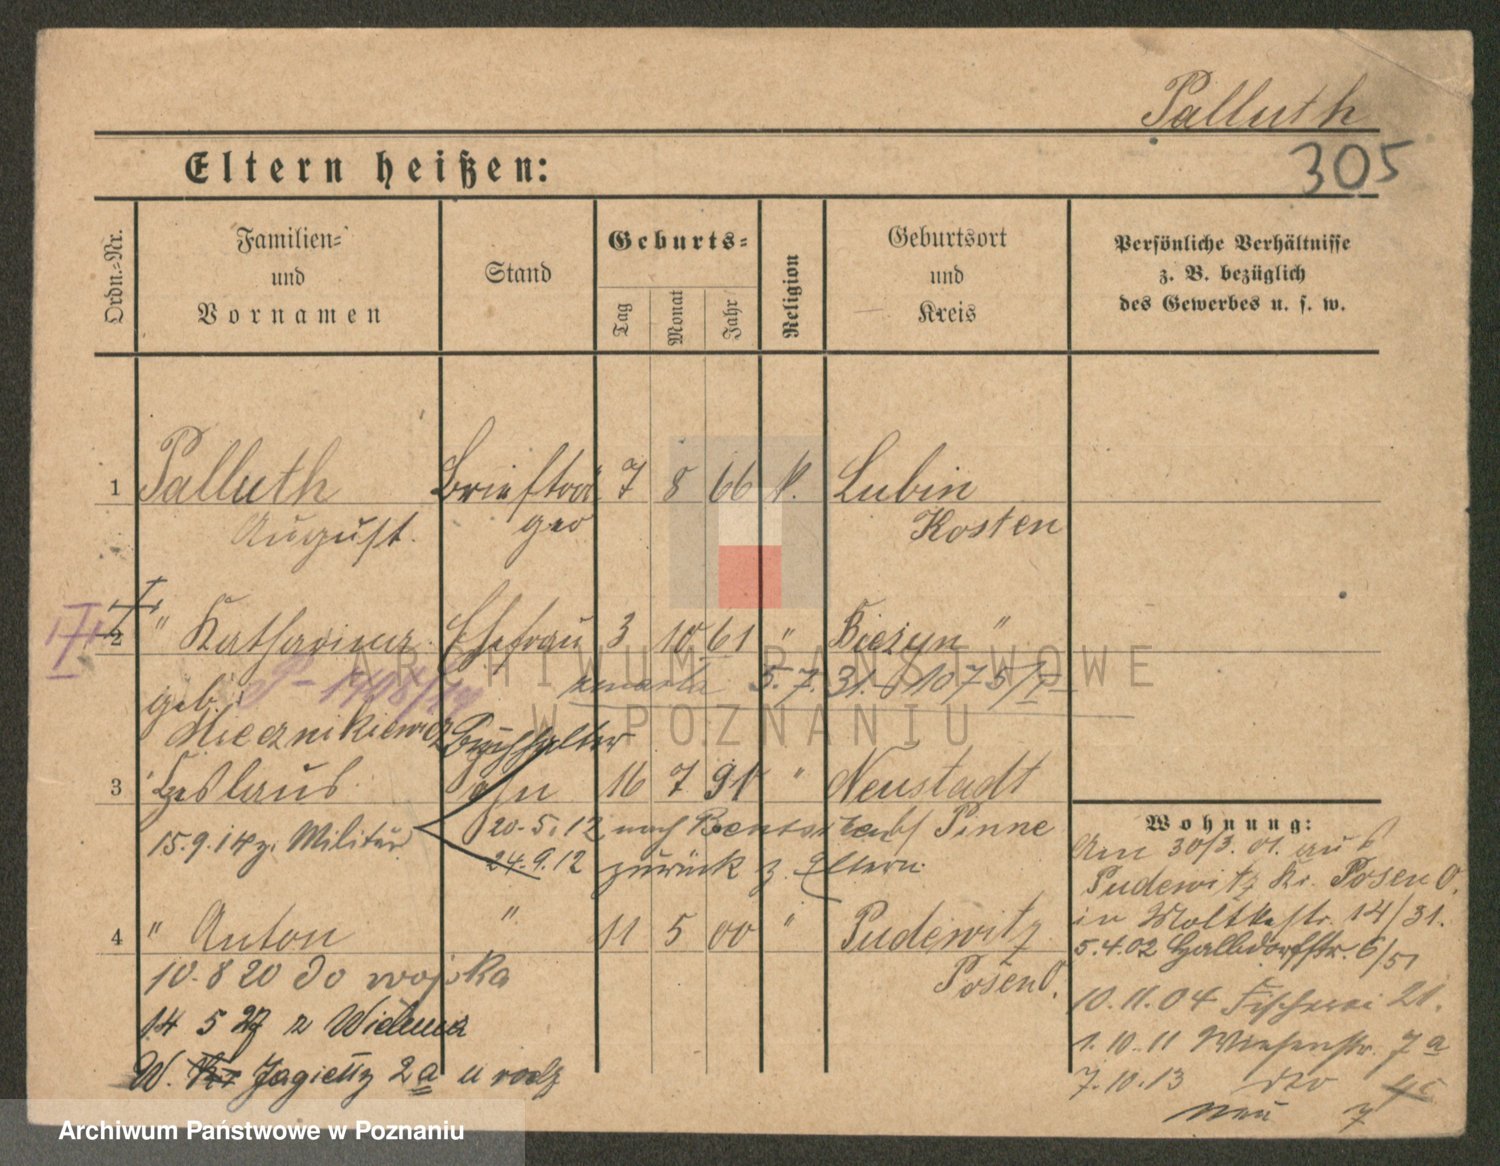 Palluth
305
Eltern heißen:
Ordn.-Nr.
Familien-
und
Vornamen
Stand
Geburts-
Tag
Monat
Jahr
Religion
Geburtsort
und
Kreis
Persönliche Verhältnisse
z. B. bezüglich
des Gewerbes u. s. w.
1 Palluth Briefträ 7 8 66 k. Lubin
August. ger Kosten
2 " Katharina Ehefrau 3 10 61 " Bieżyn "
geb. zmarła 5.7.31.
Miecznikiewicz Buchhalter
3 Ceslaus Sohn 16 7 91 " Neustadt
20.5.12 nach Pinne
15.9.14 z. Militär
24.9.12 zurück z. Eltern.
4 " Anton " 11 5 00 " Pudewitz
10.8 20 do wojska Posen O.
14 5 27 z Wielunia
W. Jagiełły 2a u
Wohnung:
Am 30/3.01. aus
Pudewitz Kr. Posen O.
in Moltkestr. 14/31.
5.4.02 Halbdorfstr. 6/51
10.11.04 Fischerei 21.
1.10.11 Wiesenstr. 7a
7.10.13 dto
neu 7
ARCHIWUM PAŃSTWOWE
W POZNANIU
Archiwum Państwowe w Poznaniu